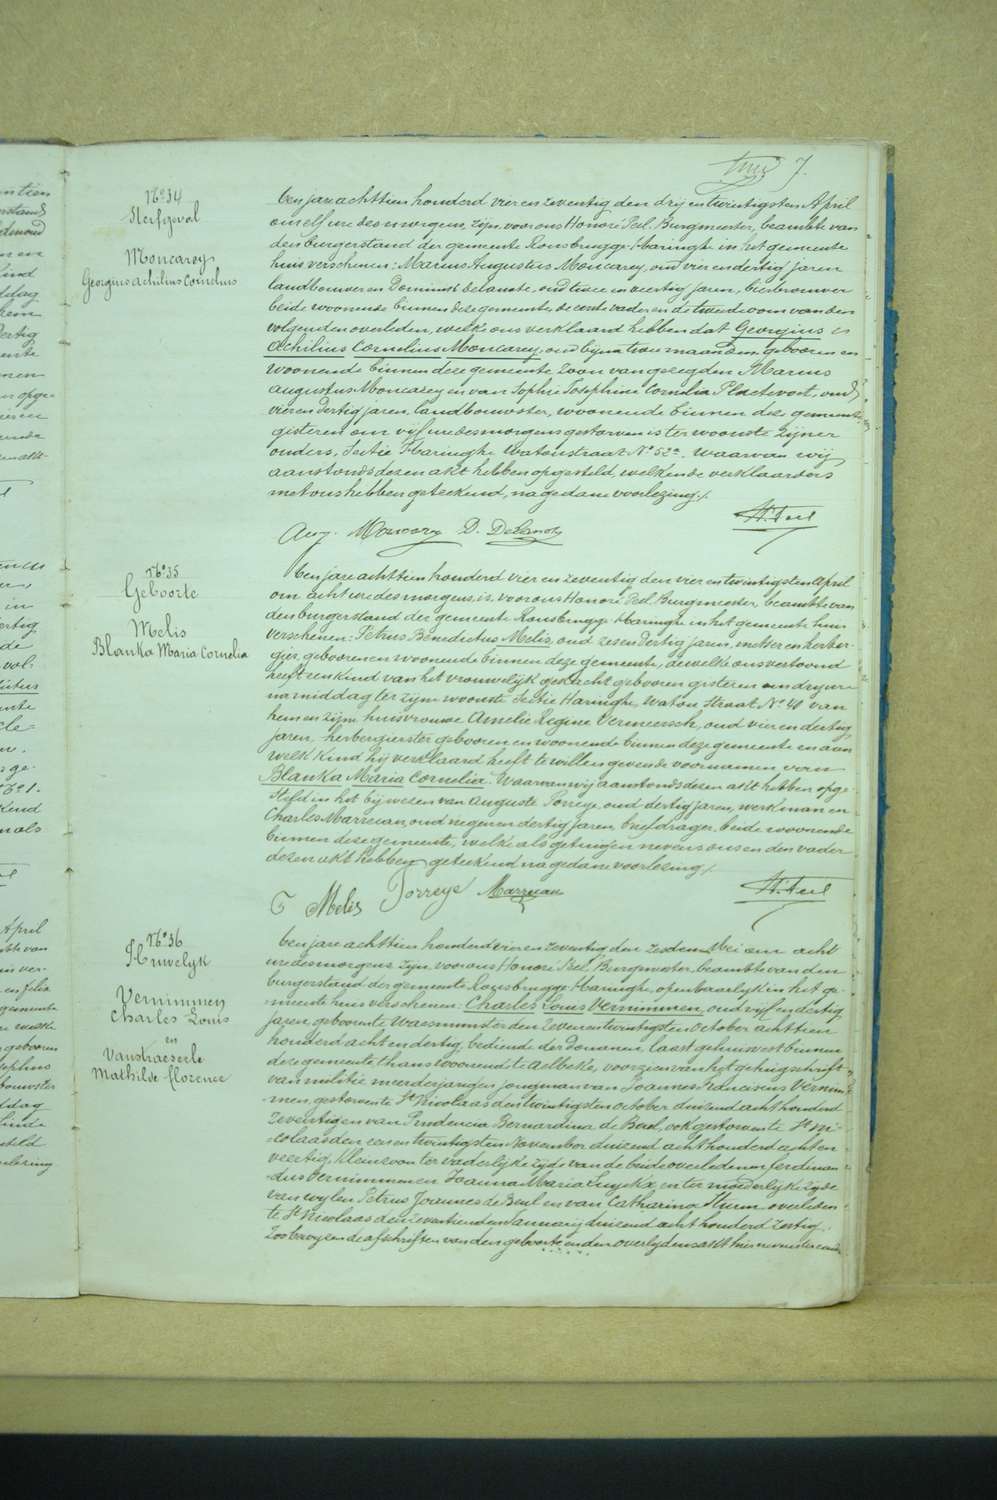 7.
No 34
Sterfgeval
Moncarey
Georgius Achilius Cornelius
Ten jare achttien honderd vier en zeventig den drij en twintigsten April
om elf ure des morgens, zijn voor ons Honoré Peel, Burgmeester, beambte van
den burgerstand der gemeente Rousbrugge-Haringhe in het gemeente
huis verschenen: Marius Augustus Moncarey, oud vier en dertig jaren
landbouwer en Dominik Delanote, oud twee en veertig jaren, bierbrouwer
beide woonende binnen deze gemeente, de eerste vader en de tweede oom van den
volgenden overleden, welke ons verklaard hebben dat Georgius
Achilius Cornelius Moncarey, oud bijna twee maanden, geboren en
woonende binnen deze gemeente zoon van gezegden Marius
Augustus Moncarey en van Sophie Josephine Cornelia Plaetevoet, oud
vier en dertig jaren, landbouwster, woonende binnen deze gemeente,
gisteren om vijf ure des morgens gestorven is ter woonste zijner
ouders, Sectie Haringhe Watoustraat No 52a. Waarvan wij
aanstonds dezen akt hebben opgesteld, welken de verklaarders
met ons hebben geteekend, na gedane voorlezing./.
Aug. Moncarey D. Delanote H. Peel
No 35
Geboorte
Melis
Blanka Maria Cornelia
Ten jare achttien honderd vier en zeventig den vier en twintigsten April
om acht ure des morgens, is voor ons Honoré Peel, Burgmeester, beambte van
den burgerstand der gemeente Rousbrugge-Haringhe in het gemeente huis
verschenen: Petrus Benedictus Melis, oud zes en dertig jaren, metser en herber-
gier, geboren en woonende binnen deze gemeente, dewelke ons vertoond
heeft een kind van het vrouwelijk geslacht geboren gisteren om drij ure
namiddag ter zijn woonste Sectie Haringhe, Watou Straat No 40 van
hem en zijne huisvrouwe Amelie Regine Vermeersch, oud vier en dertig
jaren herbergierster geboren en woonende binnen deze gemeente en aan
welk kind hij verklaard heeft te willen geven de voornamen van
Blanka Maria Cornelia. Waarvan wij aanstonds dezen akt hebben opge-
steld in het bijwezen van Auguste Porreye, oud dertig jaren, werkman en
Charles Marrecau, oud negen en dertig jaren, briefdrager, beide woonende
binnen deze gemeente, welke als getuigen nevens ons en den vader
dezen akt hebben geteekend na gedane voorlezing./.
Melis Porreye Marrecau H. Peel
No 36
Huwelijk
Vernimmen
Charles Louis
en
Vanstraeseele
Mathilde Florence
Ten jare achttien honderd vier en zeventig den zesden Mei om acht
ure des morgens zijn voor ons Honoré Peel, Burgmeester beambte van den
burgerstand der gemeente Rousbrugge-Haringhe, openbaarlijk in het ge-
meente huis verschenen: Charles Louis Vernimmen, oud vijf en dertig
jaren, geboren te Waesmunster den zeven en twintigsten October achttien
honderd acht en dertig, bediende der Douanen, laatst gehuisvest binnen
deze gemeente thans woonende te Aelbeke, voorzien van het getuigschrift
van militie meerderjarigen jongman van Joannes Franciscus Vernim-
men, gestorven te St Nicolaas den twintigsten October duizend acht honderd
zeventig en van Prudencia Bernardina de Beul, ook gestorven te St Ni-
colaas den een en twintigsten November duizend acht honderd acht en
veertig, kleinzoon ter vaderlijke zijde van de beide overledenen Ferdinan-
dus Vernimmen en Joanna Maria Luyckx, en ter moederlijke zijde
van wijlen Petrus Joannes de Beul en van Catharina Sturm overleden
te St Nicolaas den zeventienden Januarij duizend acht honderd zestig.
Zoo bewijzen de afschriften van den geboorte en den overlijdens akt